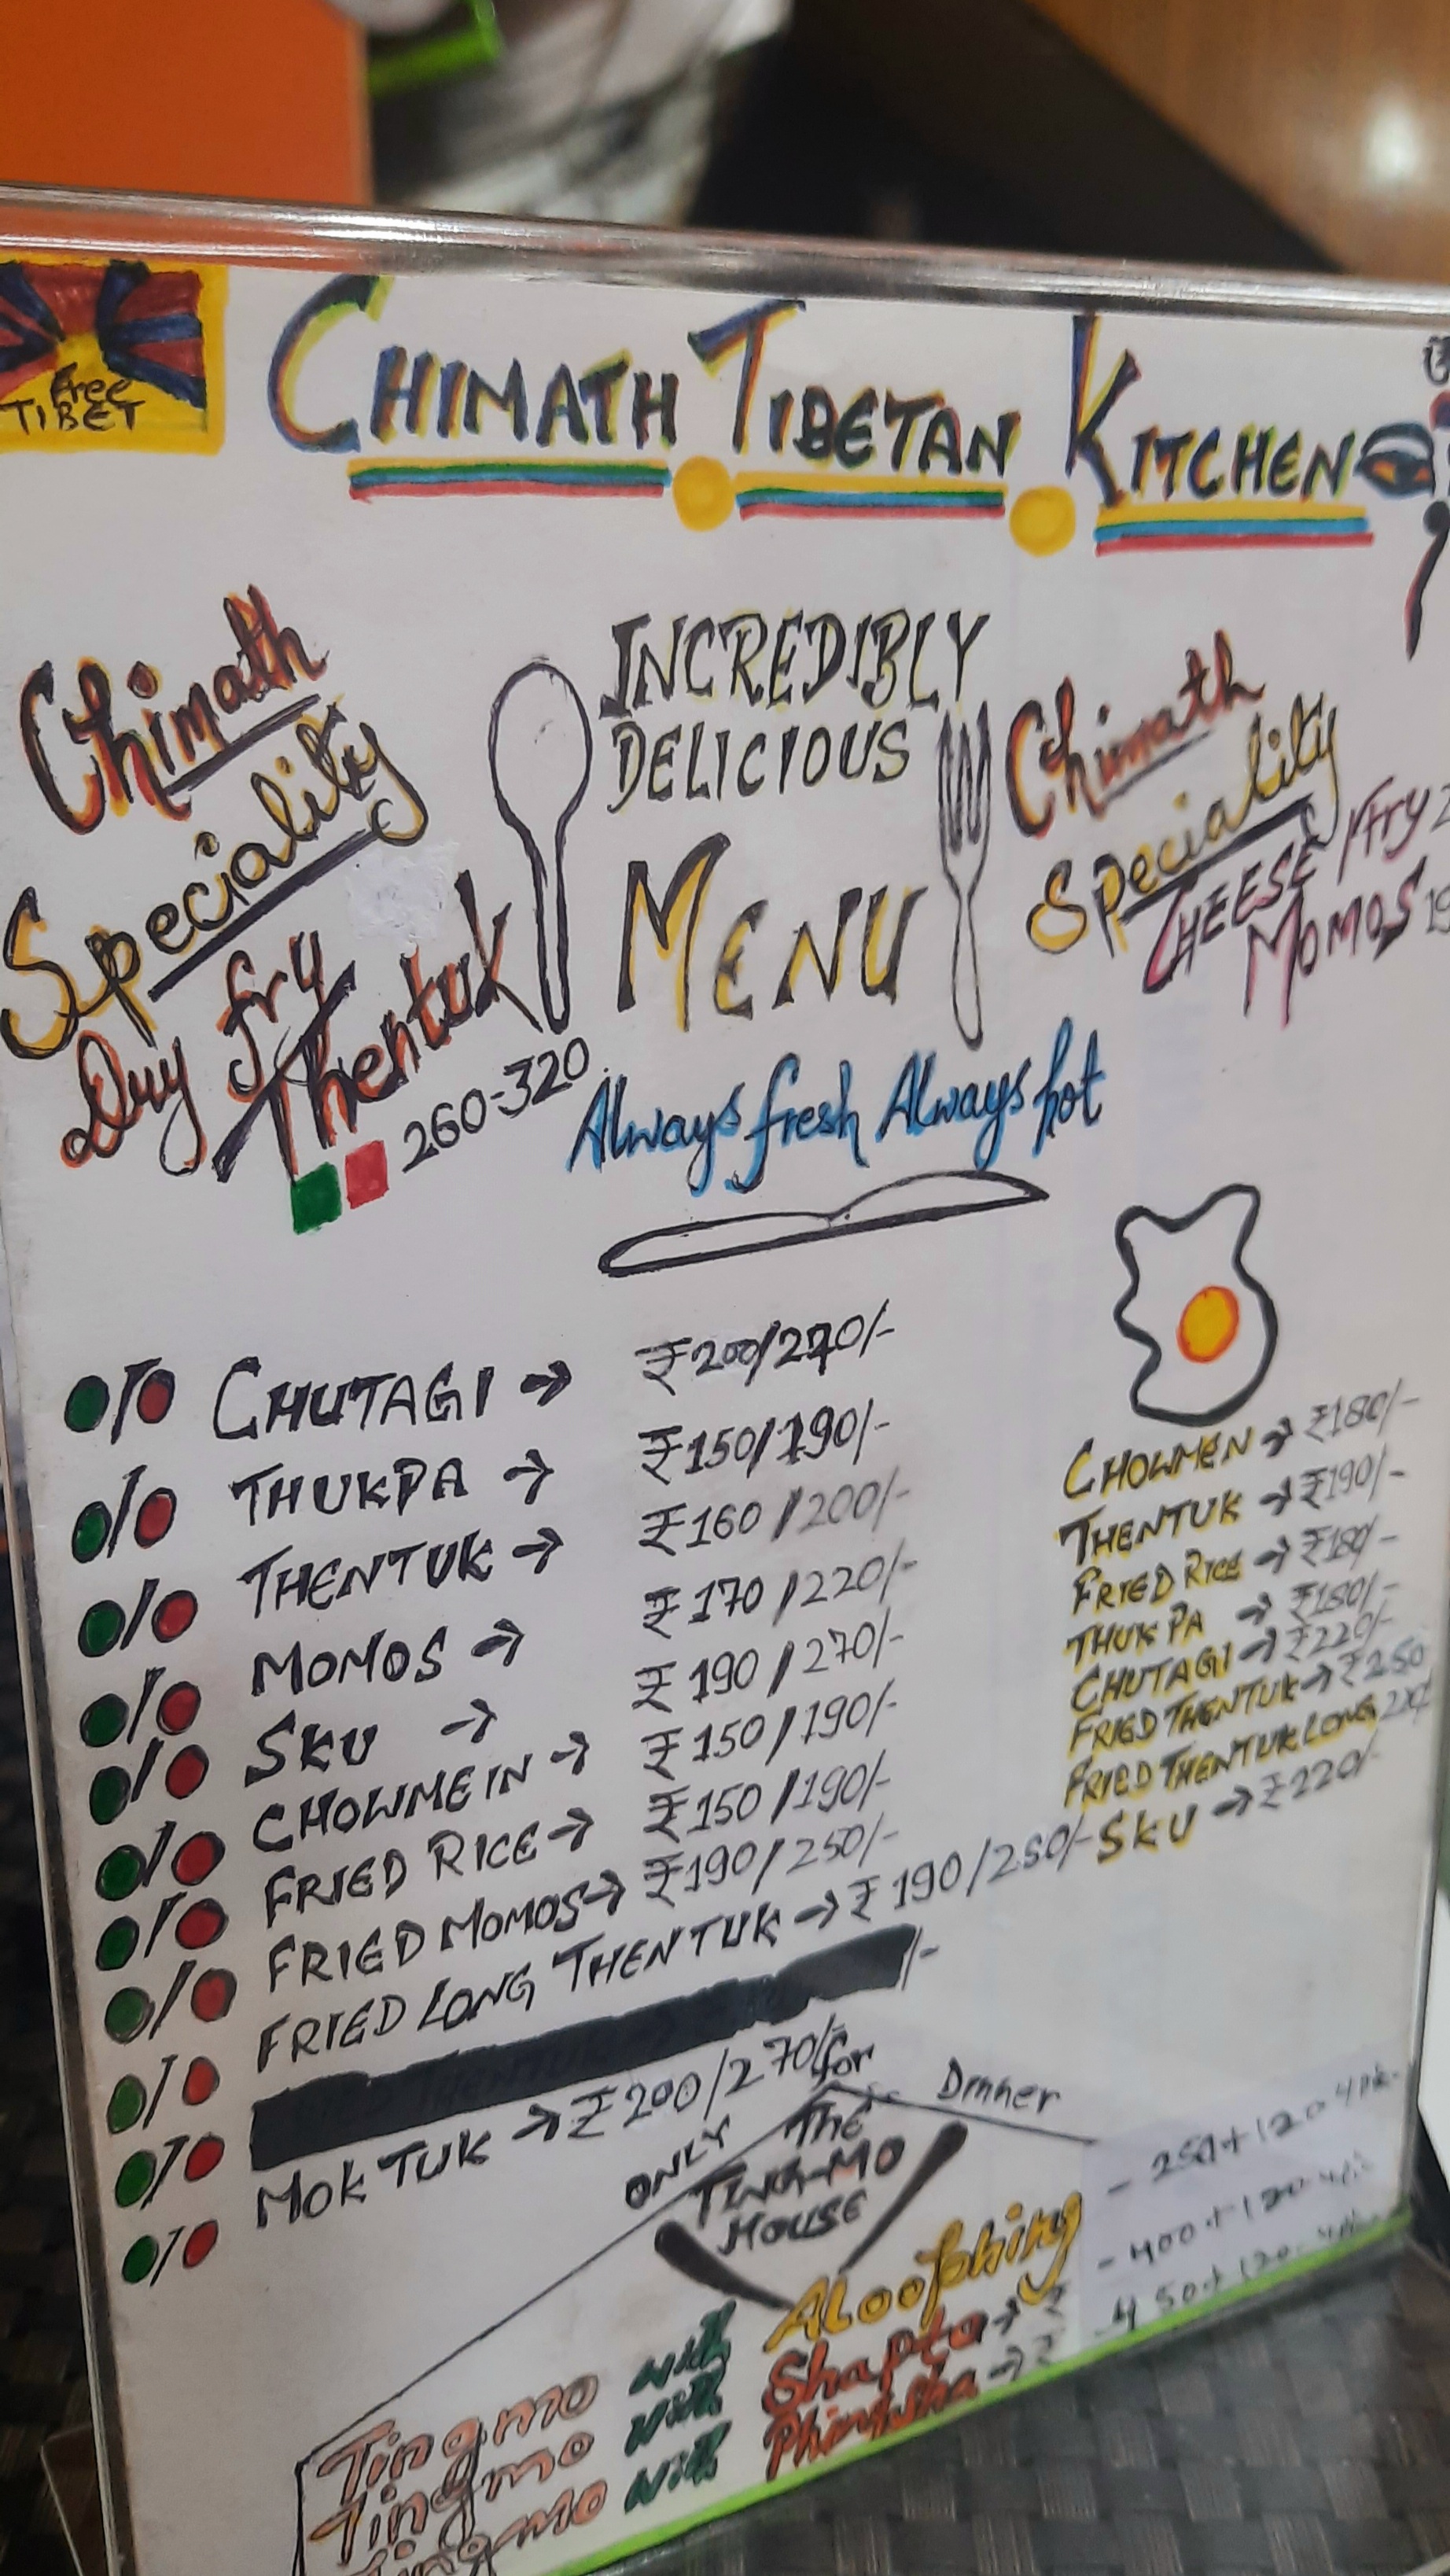 Free
TIBET
CHIMATH TIBETAN KITCHEN
Chimath
Speciality
Dry fry
Thentuk
260-320
INCREDIBLY
DELICIOUS
MENU
Always fresh Always hot
Chimath
Speciality
CHEESE Fry
MOMOS
CHUTAGI → ₹200/270/-
THUKPA → ₹150/190/-
THENTUK → ₹160/200/-
MOMOS → ₹170/220/-
SKU → ₹190/270/-
CHOWMEIN → ₹150/190/-
FRIED RICE → ₹150/190/-
FRIED MOMOS → ₹190/250/-
FRIED LONG THENTUK → ₹190/250/-
/-
MOKTUK → ₹200/270/-
CHOWMEN → ₹180/-
THENTUK → ₹190/-
FRIED RICE → ₹180/-
THUKPA → ₹180/-
CHUTAGI → ₹220/-
FRIED THENTUK → ₹250
FRIED THENTUK LONG
SKU → ₹220/-
ONLY for Dinner
THE
TING-MO
HOUSE
Tingmo with Aloo phing - 250+120
Tingmo with Shapta → ₹ - 400+120
Tingmo with Phingsha → ₹ - 450+120